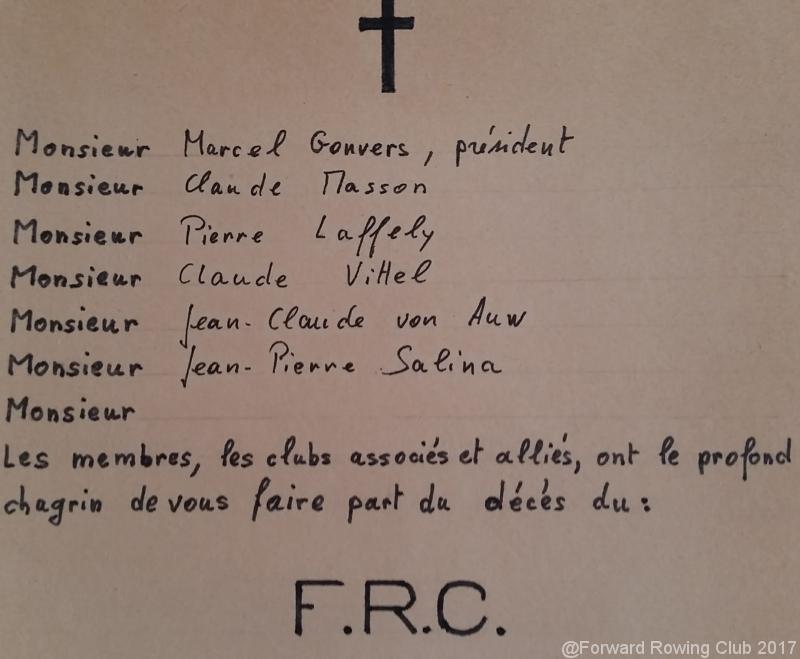 Monsieur Marcel Gonvers, président
Monsieur Claude Masson
Monsieur Pierre Laffely
Monsieur Claude Vittel
Monsieur Jean-Claude von Auw
Monsieur Jean-Pierre Salina
Monsieur
Les membres, les clubs associés et alliés, ont le profond
chagrin de vous faire part du décés du:
F.R.C.
@Forward Rowing Club 2017